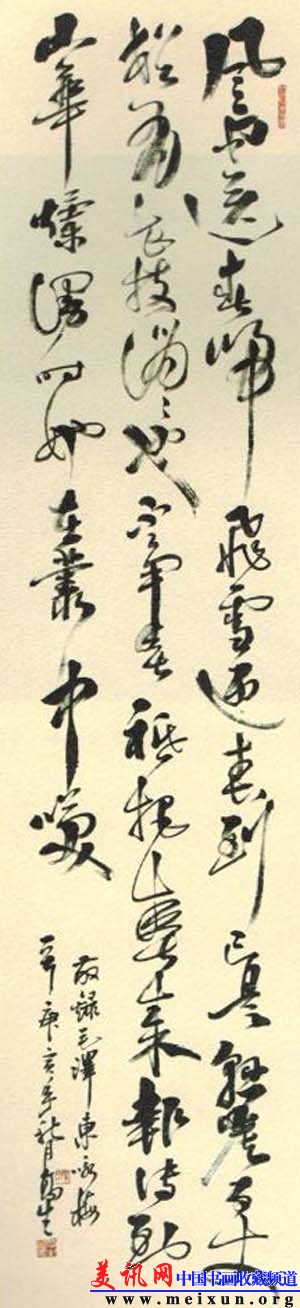 風雨送春歸飛雪迎春到已是懸崖百丈冰
猶有花枝俏〻也不爭春祇把春來報待到
山華爛漫時她在叢中笑
敬録毛澤東咏梅
一首庚寅年秋月
美讯网 中国书画收藏频道
www.meixun.org